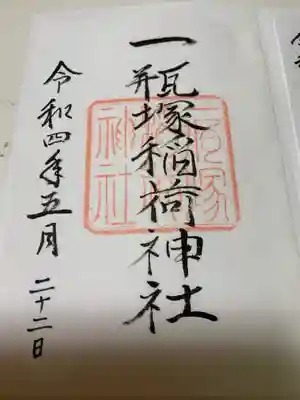 一瓶塚稲荷神社
令和四年五月二十二日